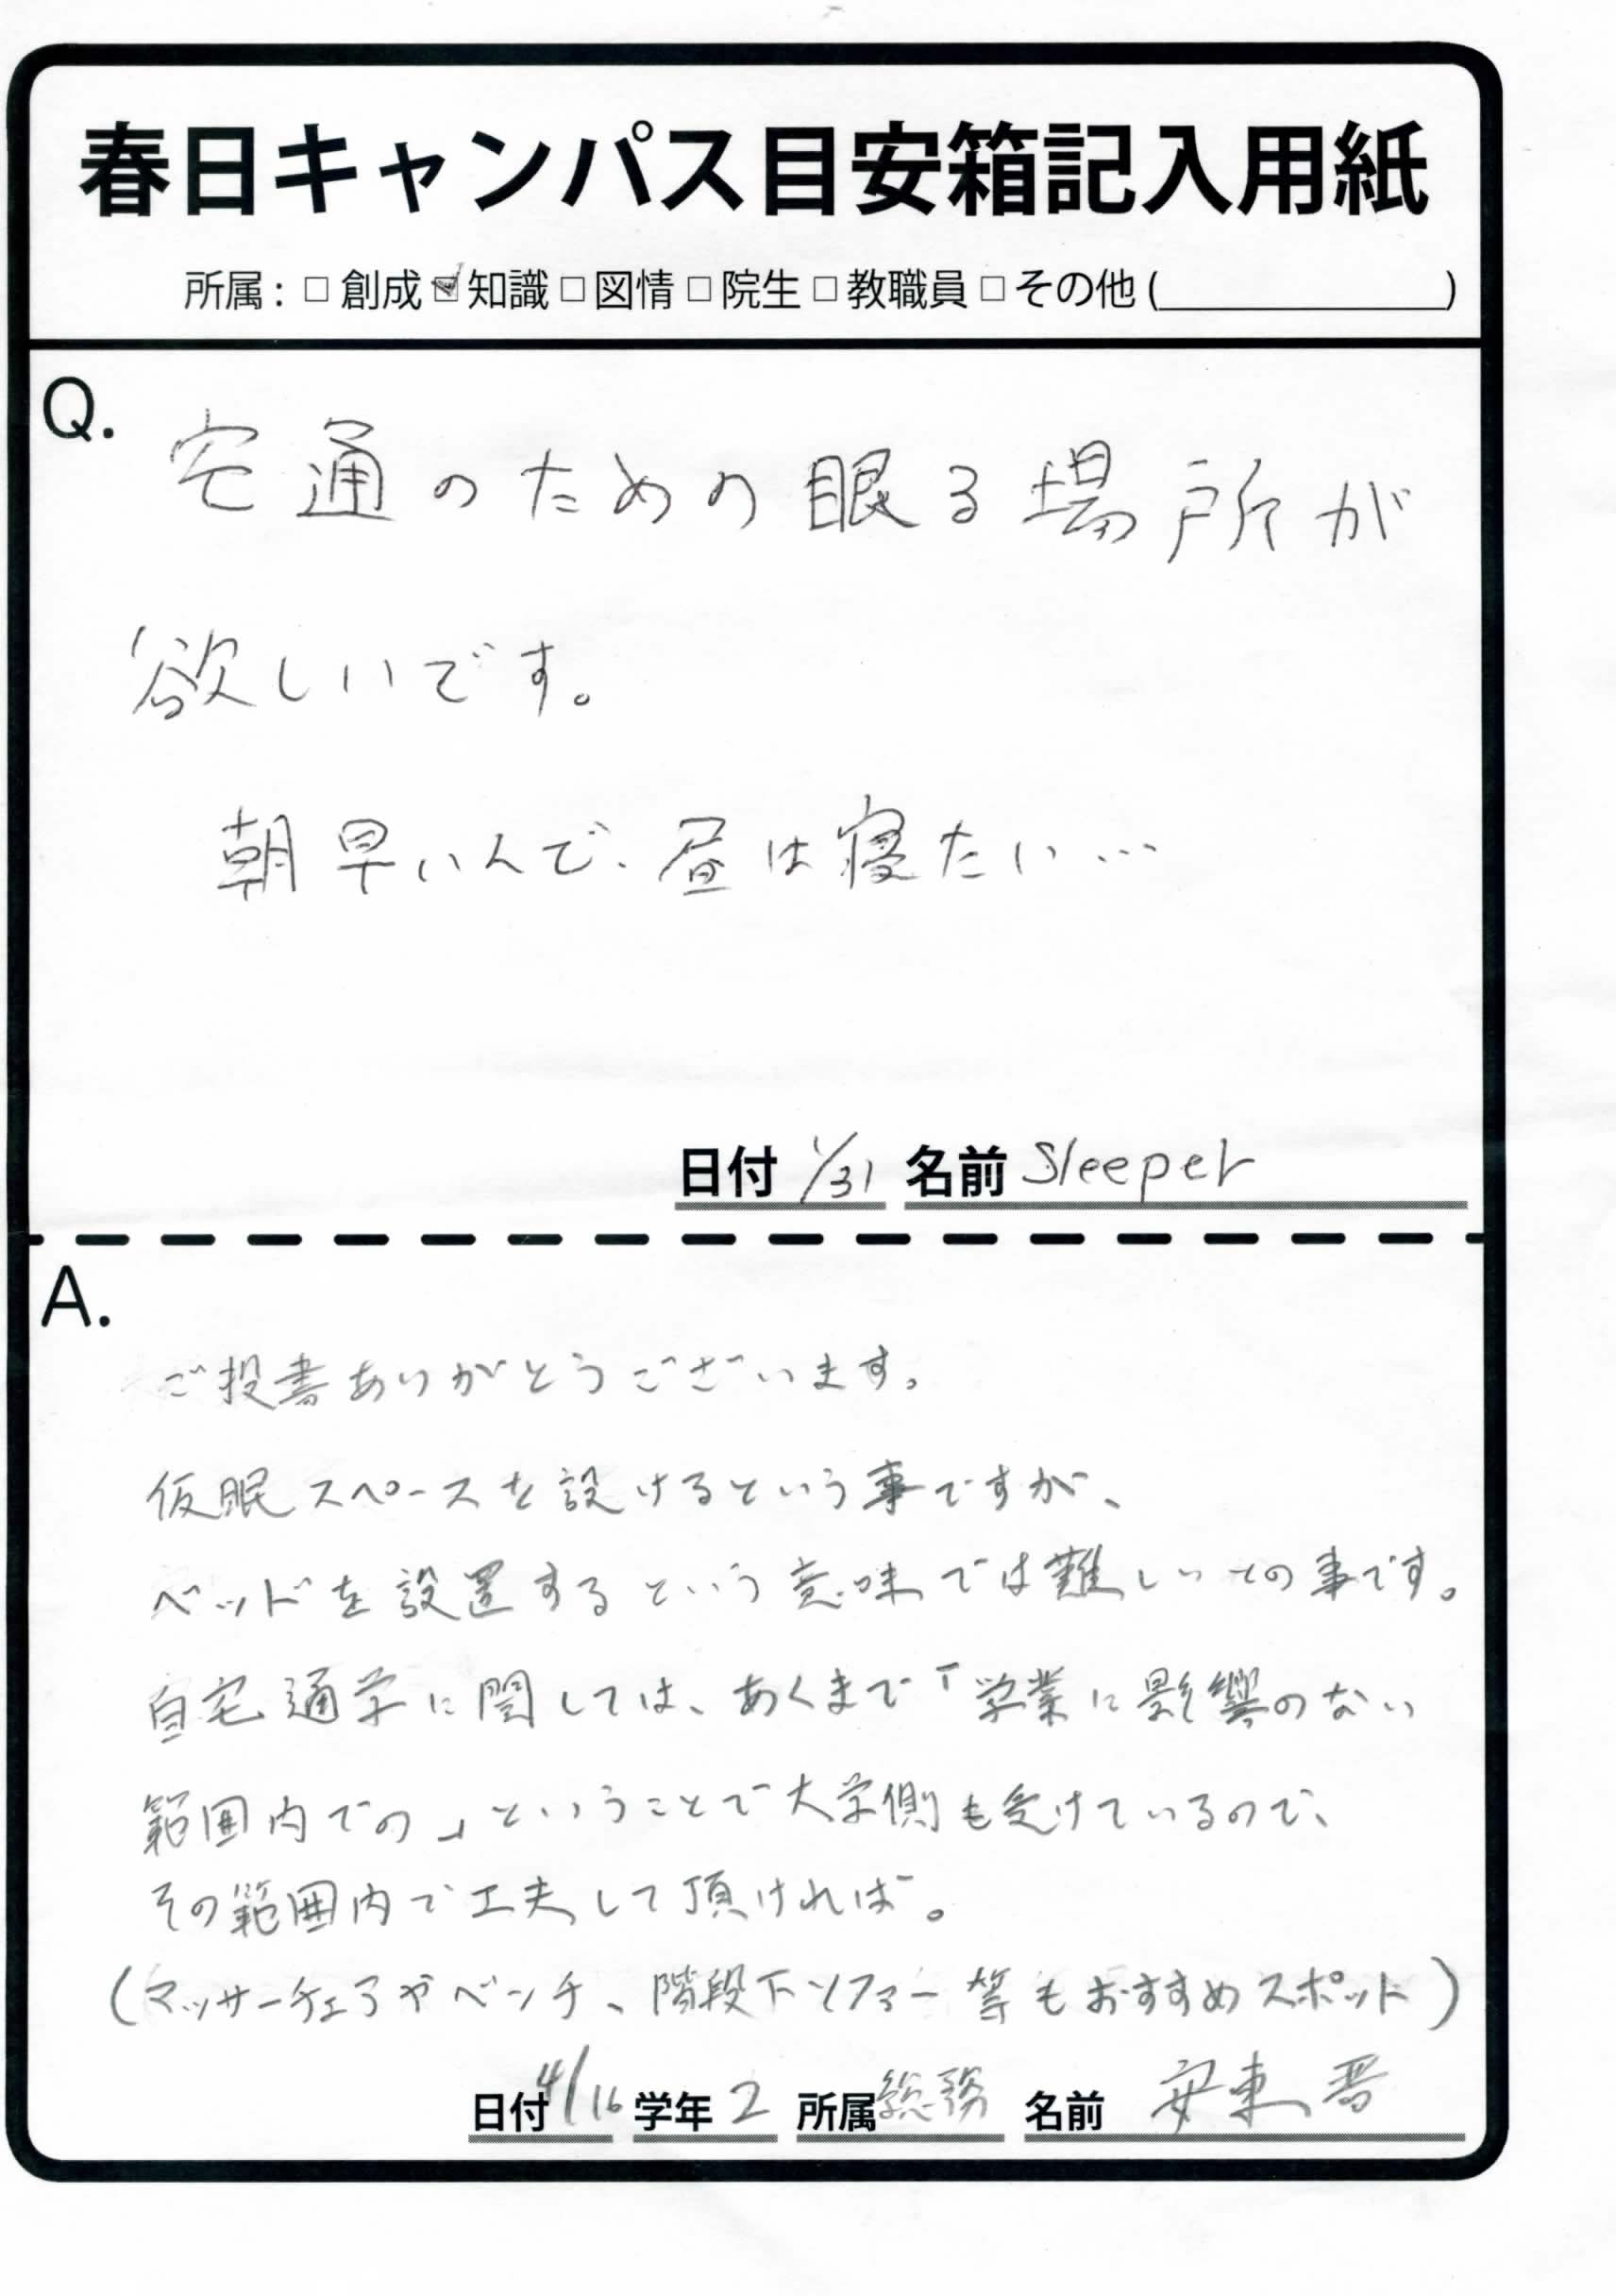 春日キャンパス目安箱記入用紙
所属: □ 創成 ☑ 知識 □ 図情 □ 院生 □ 教職員 □ その他 (　　　　)
Q.
宅通のための眠る場所が
欲しいです。
朝早いんで、昼は寝たい…
日付 1/31 名前 Sleeper
A.
ご投書ありがとうございます。
仮眠スペースを設けるという事ですが、
ベッドを設置するという意味では難しいとの事です。
自宅通学に関しては、あくまで「学業に影響のない
範囲内での」ということで大学側も受けているので、
その範囲内で工夫して頂ければ。
(マッサーチェアやベンチ、階段下ソファー等もおすすめスポット)
日付 4/16 学年 2 所属 総務 名前 安東 晋